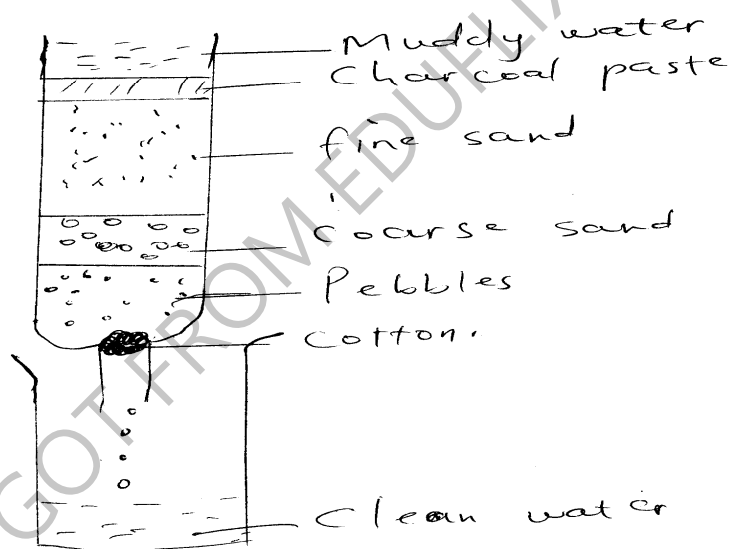 Muddy water
Charcoal paste
fine sand
coarse sand
Pebbles
cotton.
Clean water
GOT FROM EDUFLIX